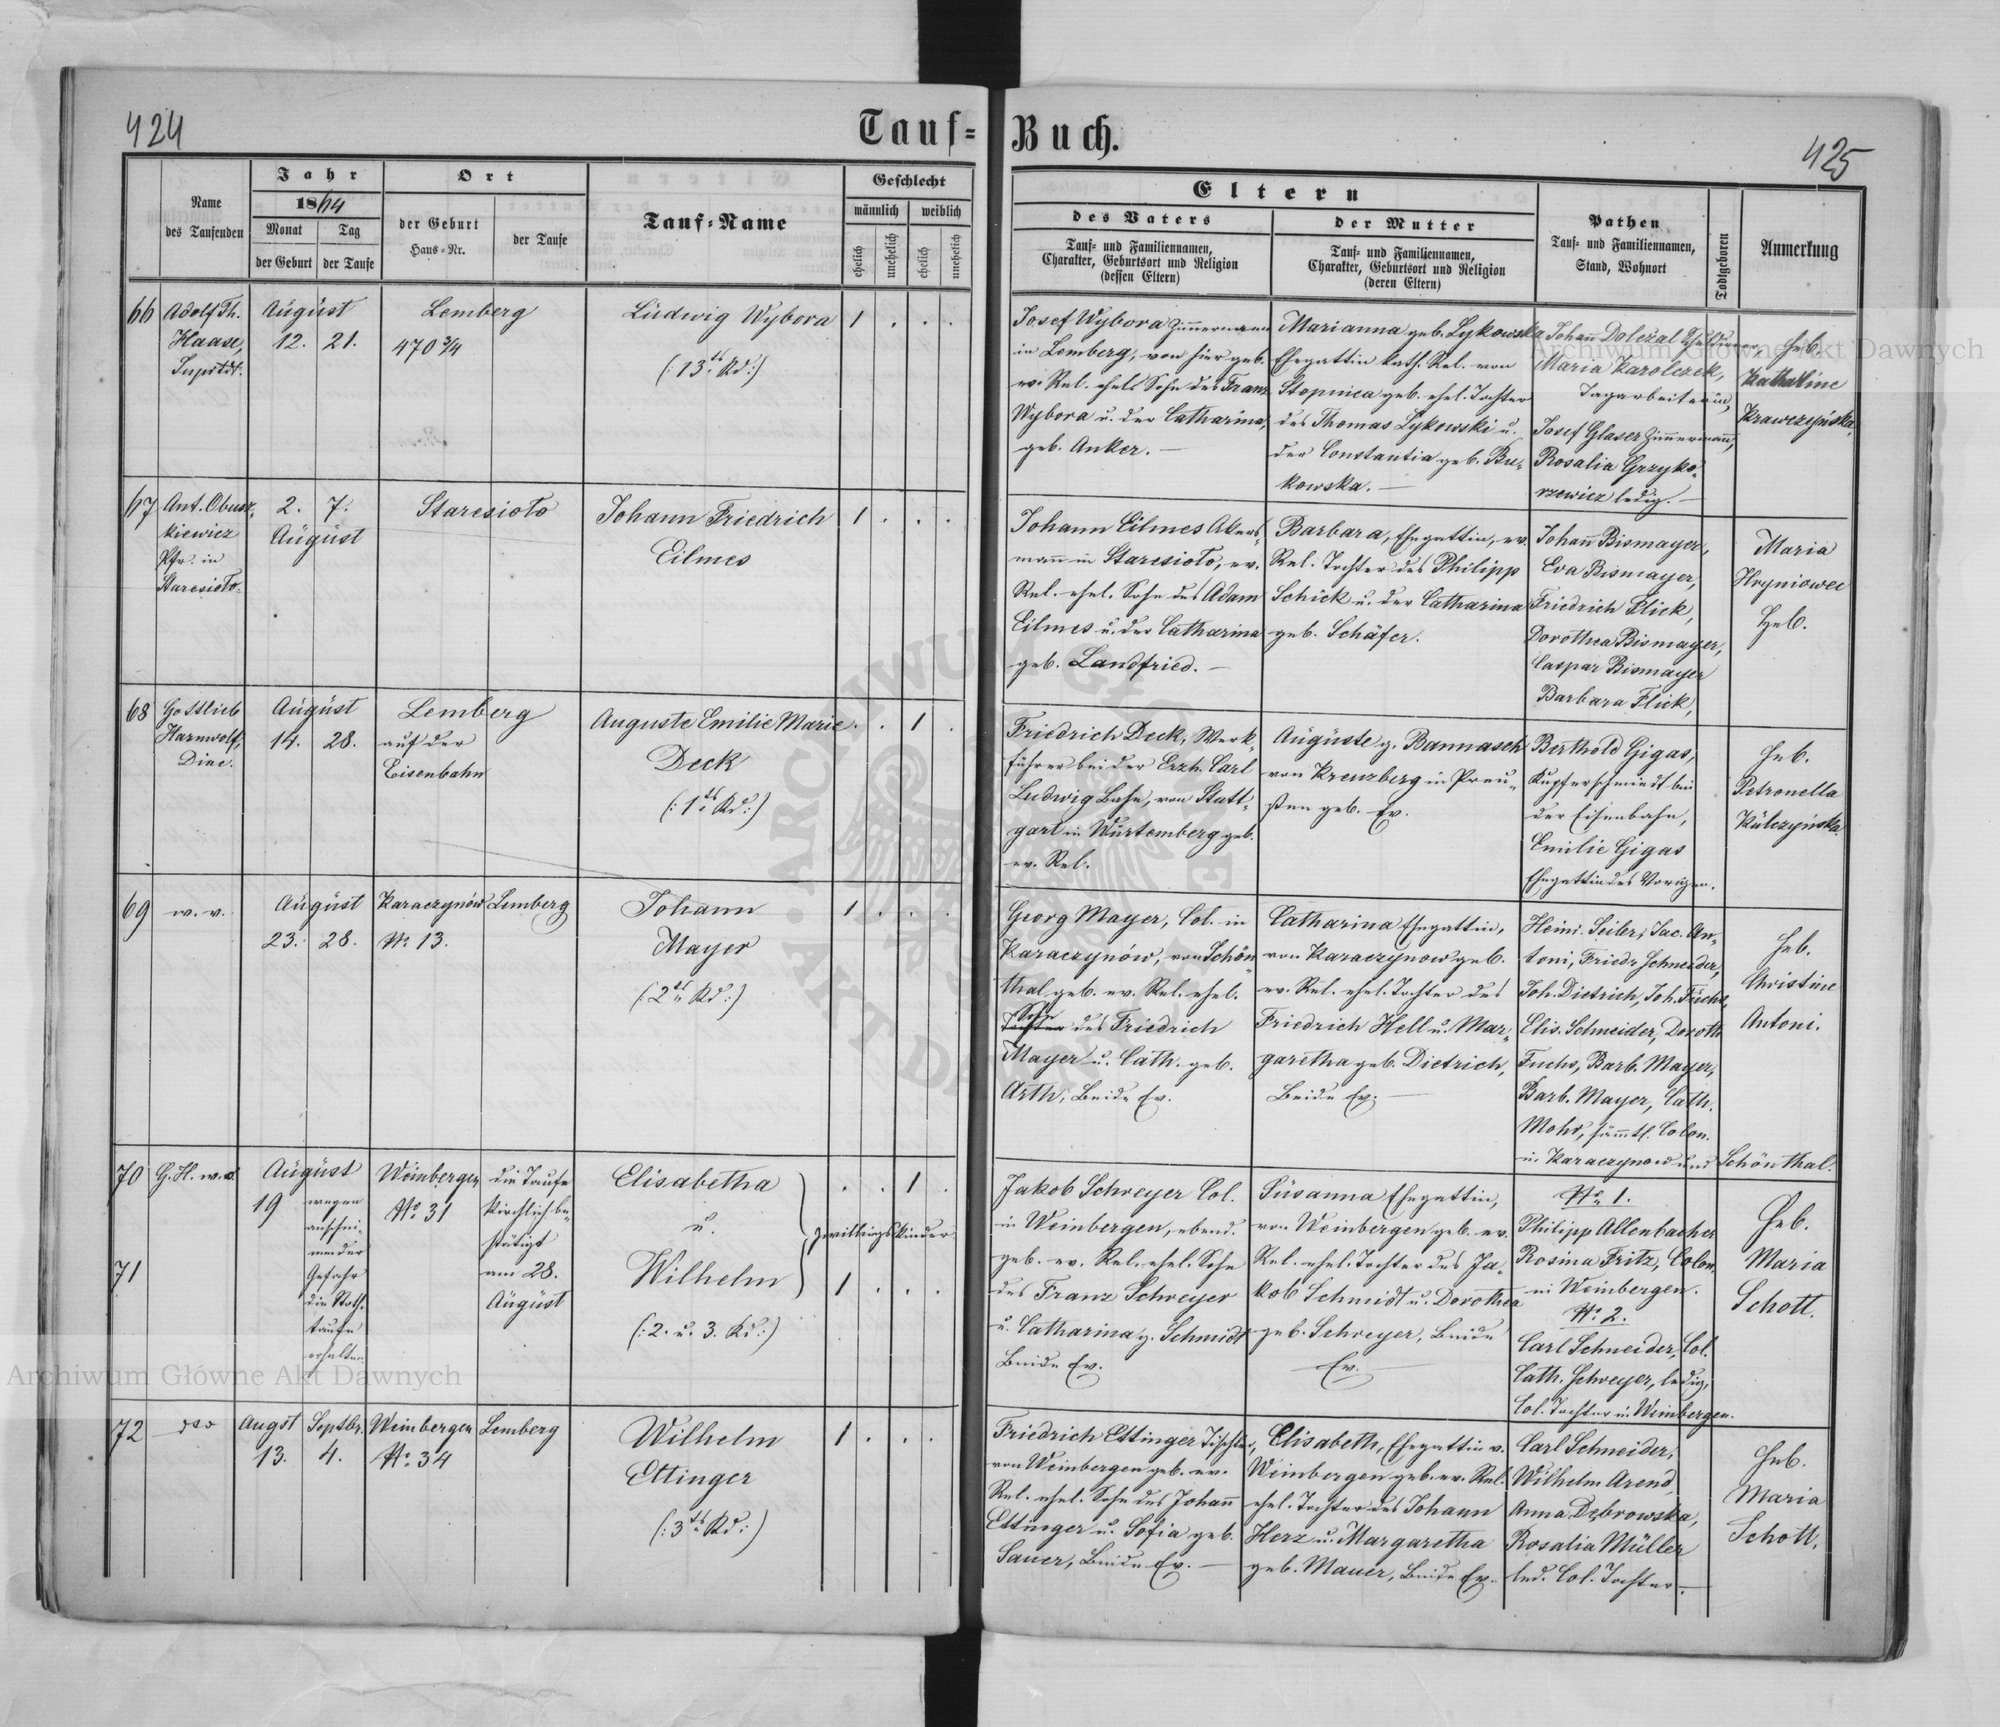 424
Tauf=
Buch.
425
Name
des Taufenden
Jahr
1864
Monat
der Geburt
Tag
der Taufe
Ort
der Geburt
Haus=Nr.
der Taufe
Tauf=Name
Geschlecht
männlich
weiblich
ehelich
unehelich
ehelich
unehelich
Eltern
des Vaters
Tauf= und Familiennamen,
Charakter, Geburtsort und Religion
(dessen Eltern)
der Mutter
Tauf= und Familiennamen,
Charakter, Geburtsort und Religion
(deren Eltern)
Pathen
Tauf= und Familiennamen,
Stand, Wohnort
Todtgeboren
Anmerkung
66
Adolf Th.
Haase,
Suprtdt.
August
12. 21.
Lemberg
470 3/4
Ludwig Wybora
(: 13tes Kd :)
1 . . .
Josef Wybora Zimmermann
in Lemberg, von hier geb.
ev. Rel. ehel. Sohn des Franz
Wybora u. der Catharina,
geb. Anker. —
Marianna geb. Lykowska
Ehegattin kath. Rel. von
Stopnica geb. ehel. Tochter
des Thomas Lykowski u.
der Constantia geb. Bu-
kowska. —
Johann Dolezal
Maria Karolczek,
Tagarbeiterin,
Josef Glaser Zimmermann,
Rosalia Grzyko-
rzewicz ledig. —
Heb.
Katharine
Krawczyńska.
67
Ant. Obusz-
kiewicz
Pfr. in
Staresioło.
2. 7.
August
Staresioło
Johann Friedrich
Eilmes
1 . . .
Johann Eilmes Akers-
mann in Staresioło, ev.
Rel. ehel. Sohn des Adam
Eilmes u. der Catharina
geb. Landfried. —
Barbara, Ehegattin, ev.
Rel. Tochter des Philipp
Schick u. der Catharina
geb. Schäfer.
Johann Bismayer,
Eva Bismayer,
Friedrich Flick,
Dorothea Bismayer,
Caspar Bismayer
Barbara Flick,
Maria
Hryniowec
Heb.
68
Gottlieb
Harnwolf,
Diac.
August
14. 28.
Lemberg
auf der
Eisenbahn
Auguste Emilie Marie
Deck
(: 1tes Kd :)
. . 1 .
Friedrich Deck, Werk-
führer bei der Erzh. Carl
Ludwig Bahn, von Statt-
gart in Würtemberg geb.
ev. Rel.
Auguste g. Bannasch
von Kreuzberg in Preu-
ßen geb. Ev.
Berthold Gigas,
Kupferschmiedt bei
der Eisenbahn,
Emilie Gigas
Ehegattin des Vorigen.
Heb.
Petronella
Kulczyńska.
69
w. v.
August
23. 28.
Karaczynów
Nr. 13.
Lemberg
Johann
Mayer
(: 2tes Kd :)
1 . . .
Georg Mayer, Col. in
Karaczynów, von Schön-
thal geb. ev. Rel. ehel.
Sohn
Tochter des Friedrich
Mayer u. Cath. geb.
Arth, Beide Ev.
Catharina Ehegattin,
von Karaczynow geb.
ev. Rel. ehel. Tochter des
Friedrich Hell u. Mar-
garetha geb. Dietrich,
Beide Ev. —
Heinr. Seiler, Jac. An-
toni, Friedr. Schneider,
Joh. Dietrich, Joh. Fuchs,
Elis. Schneider, Doroth.
Fuchs, Barb. Mayer,
Barb. Mayer, Cath.
Mohr, sämmtl. Colon.
in Karaczynow und Schönthal.
Heb.
Christine
Antoni.
70
71
G. H. w. v.
August
19
wegen
anschei-
nender
Gefahr
die Noth-
taufe
erhalten
Weinbergen
No. 31
die Taufe
kirchlich be-
stätigt
am 28.
August
Elisabetha
u.
Wilhelm
(: 2. u. 3. Kd :)
. . 1 .
Zwillingskinder
1 . . .
Jakob Schreyer Col.
in Weinbergen, ebend.
geb. ev. Rel. ehel. Sohn
des Franz Schreyer
u. Catharina g. Schmidt
Beide Ev.
Susanna Ehegattin,
von Weinbergen geb. ev.
Rel. ehel. Tochter des Ja-
kob Schmidt u. Dorothea
geb. Schreyer, Beide
Ev. —
No. 1.
Philipp Allenbacher
Rosina Fritz, Colon.
in Weinbergen.
No. 2.
Carl Schneider, Col.
Cath. Schreyer, ledig,
Col. Tochter in Weinbergen.
Heb.
Maria
Schott.
72
Augst
13.
Septbr.
4.
Weinbergen
No. 34
Lemberg
Wilhelm
Ettinger
(: 3tes Kd :)
1 . . .
Friedrich Ettinger Tischler,
von Weinbergen geb. ev.
Rel. ehel. Sohn des Johann
Ettinger u. Sofia geb.
Sauer, Beide Ev. —
Elisabeth, Ehegattin v.
Weinbergen geb. ev. Rel.
ehel. Tochter des Johann
Herz u. Margaretha
geb. Mauer, Beide Ev.
Carl Schneider,
Wilhelm Arend,
Anna Dębrowska,
Rosalia Müller
led. Col. Tochter —.
Heb.
Maria
Schott.
Archiwum Główne Akt Dawnych
Archiwum Główne Akt Dawnych
ARCHIWUM GŁÓWNE AKT DAWNYCH